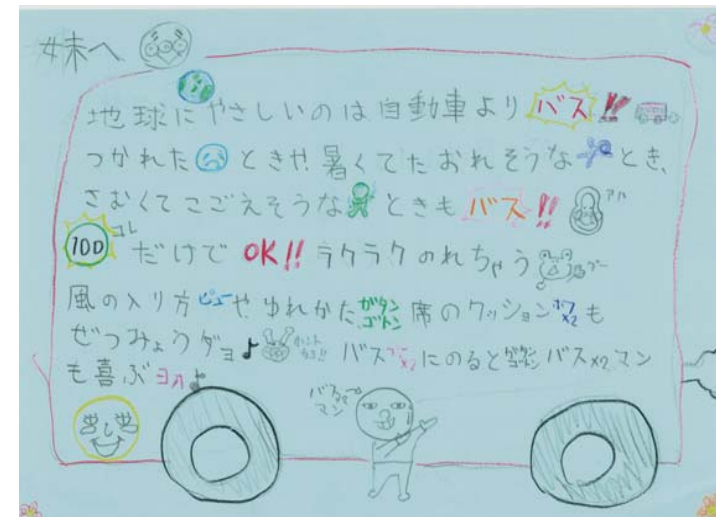 妹へ
地球にやさしいのは自動車よりバス!!
つかれたときや暑くてたおれそうなとき、
さむくてこごえそうなときもバス!!
100 コレだけでOK!! ラクラクのれちゃう
風の入り方ピューや、ゆれかたガタンゴトン席のクッションも
ぜつみょうダョ♪ バスにのるとバス×2マン
も喜ぶヨ♪
バス×2マン→